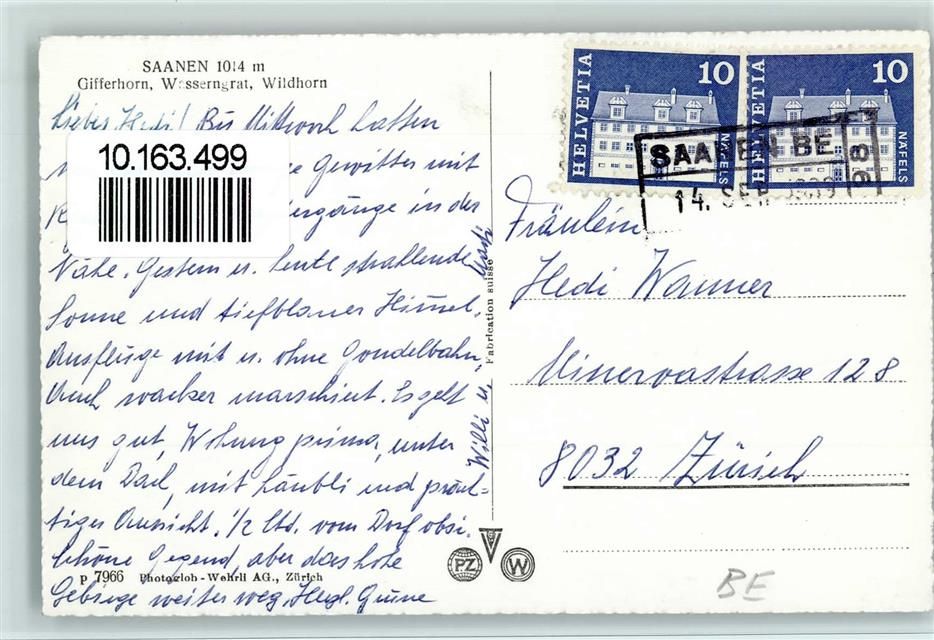 SAANEN 1014 m
Gifferhorn, Wasserngrat, Wildhorn
Liebes Hedi! Bis Mittwoch hatten
10.163.499
Gewitter mit
in der
Nähe. Gestern u. heute strahlende
Sonne und tiefblauer Himmel.
Ausflüge mit u. ohne Gondelbahn,
Auch wacker marschiert. Es geht
uns gut, Wohnung prima, unter
dem Dach, mit Läubli und präch-
tiger Aussicht. 1/2 Std. vom Dorf
Schöne Gegend, aber das hohe
p 7966 Photoglob-Wehrli AG., Zürich
Gebirge weiter weg. Herzl. Grüsse
Willi u.
Fabrication suisse
PZ
W
HELVETIA
10
NÄFELS
HELVETIA
10
NÄFELS
SAANEN BE
14. SEP.
Fräulein
Hedi Wanner
Minervastrasse 128
8032 Zürich
BE